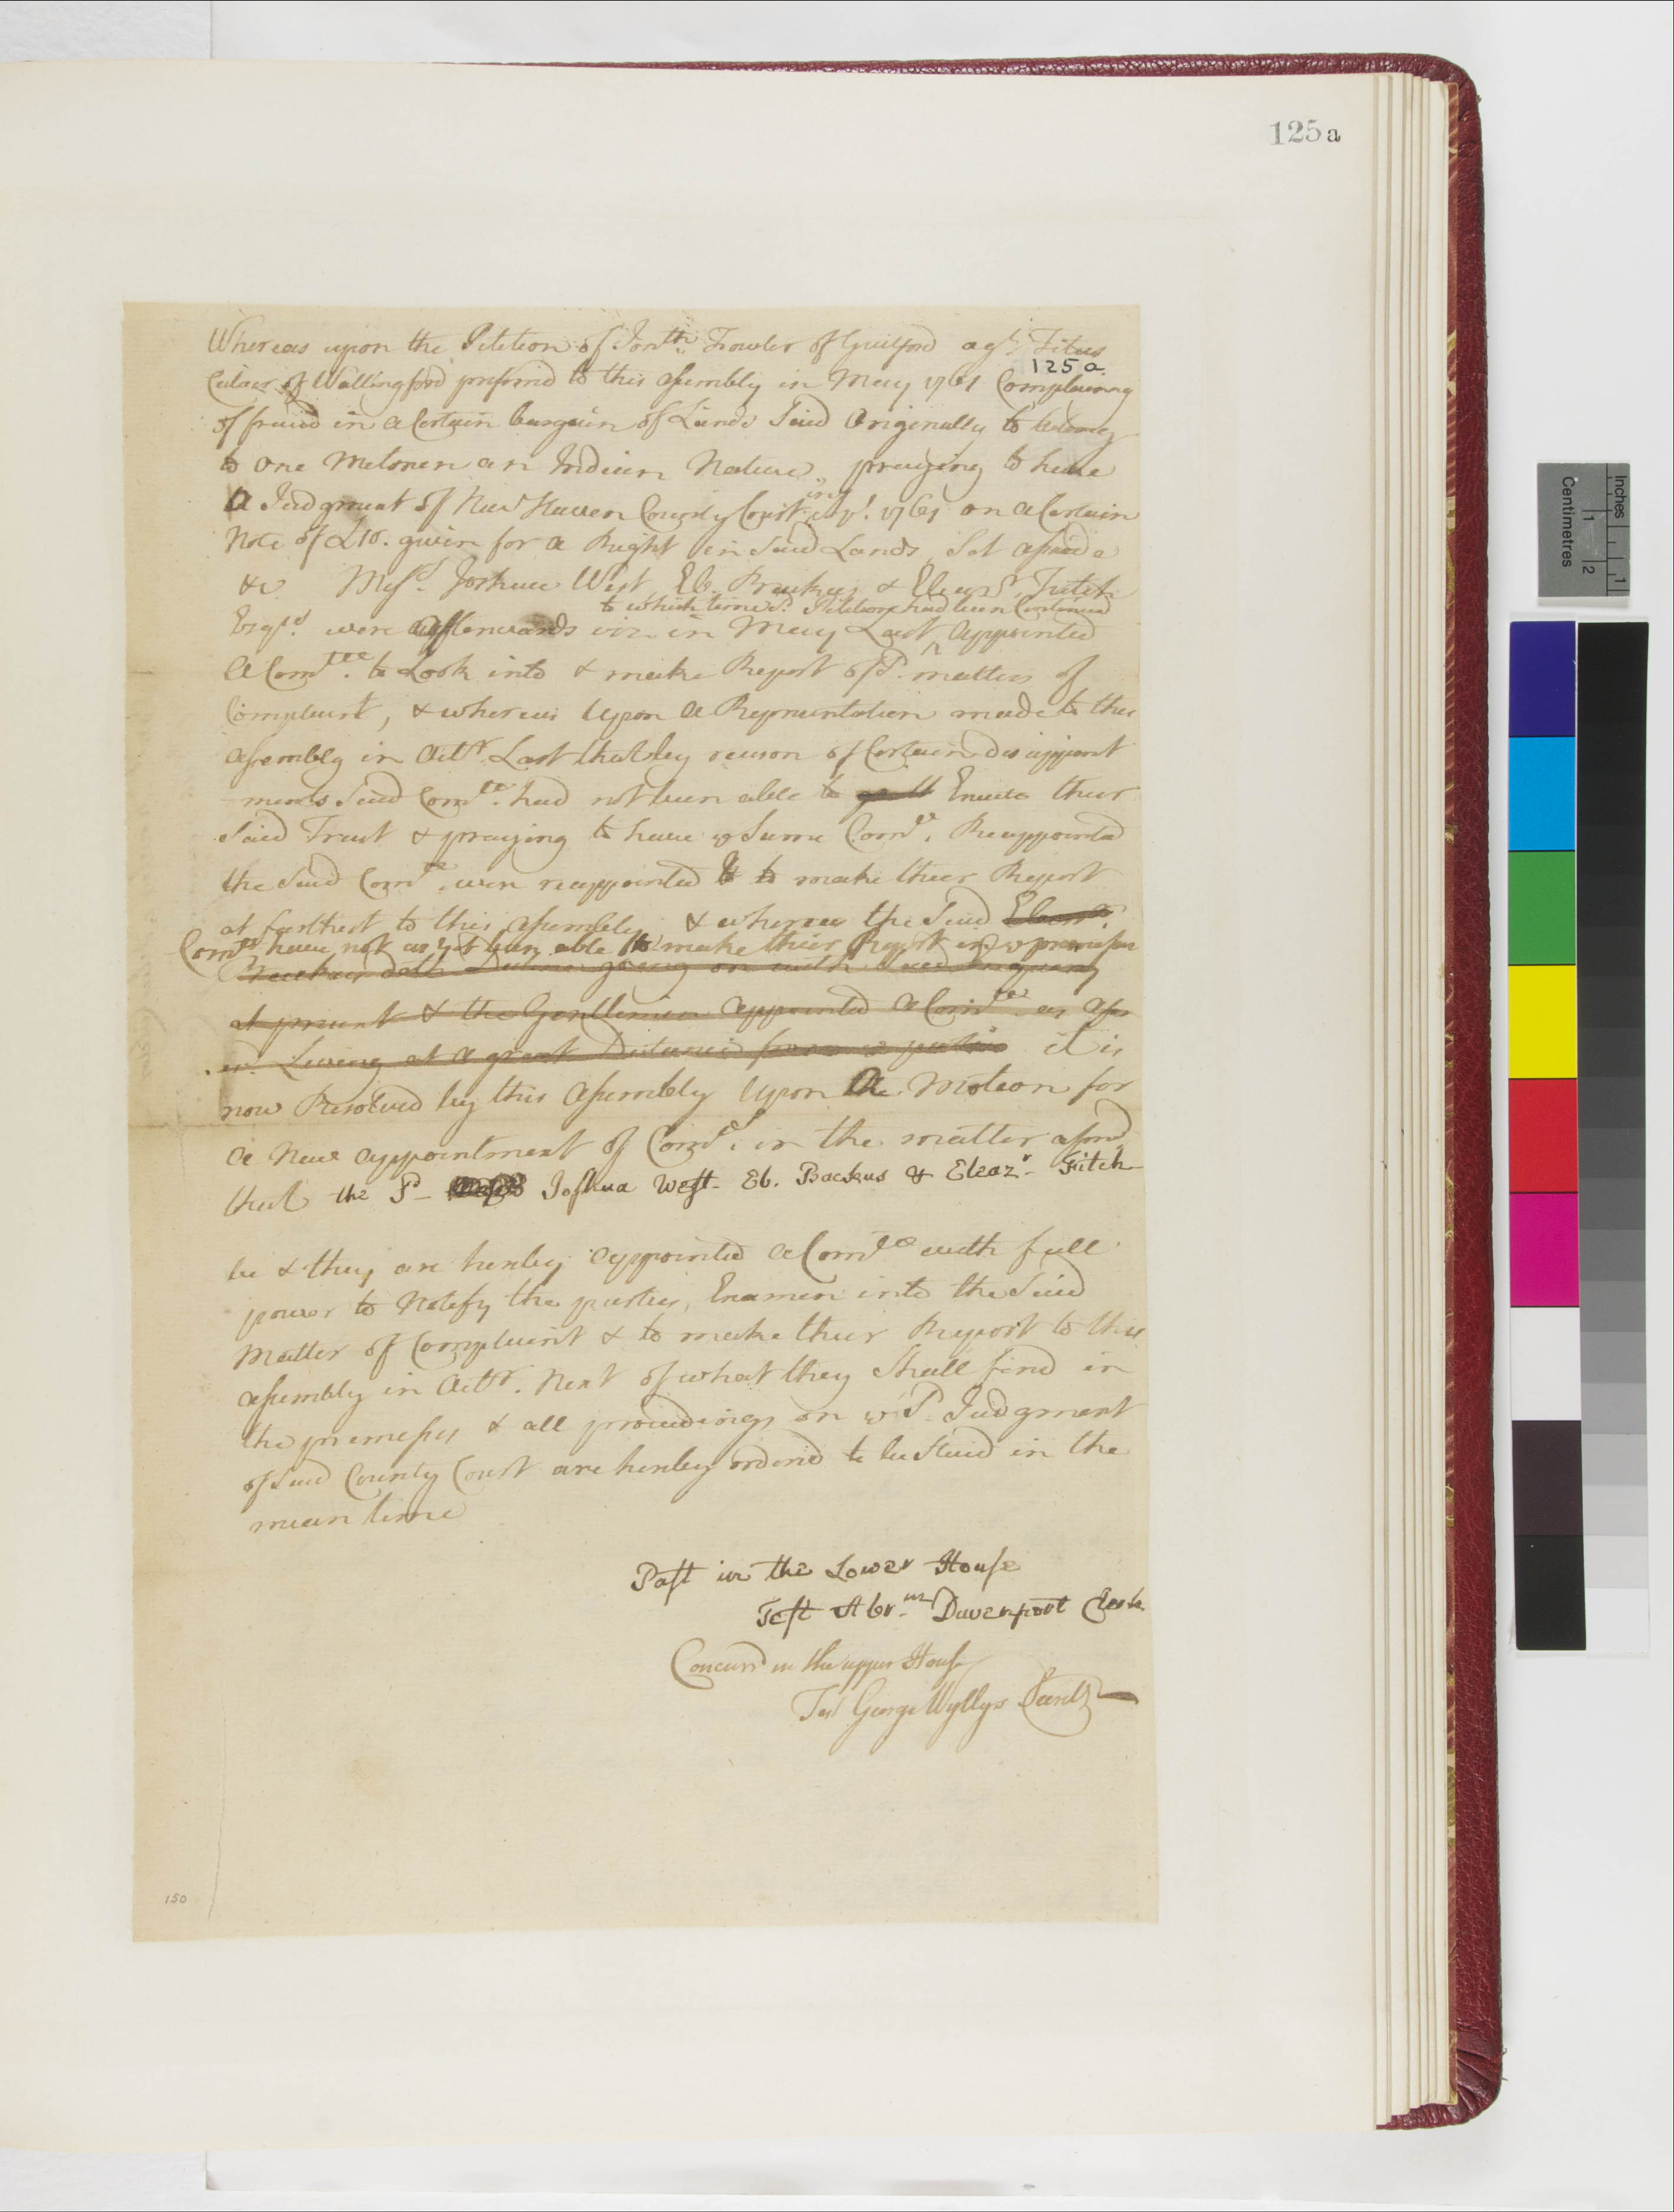 125a
Whereas upon the Petition of Jonth. Fowler of Guilford agst. Titus
125a.
of Wallingford preferred to this assembly in May 1761 Complaining
of fraud in a Certain bargain of Lands Said Originally to belong
to one an Indian Native, praying to have
A Judgment of New Haven County Court in 1761 on a Certain
Note of £10. given for a Right in Said Lands, Set asside
&c. Messrs. Joshua West, Eb. Backus & Eleazr. Fitch
to which time sd. Petition had been Continued
Esqrs. were afterwards viz in May Last ^ appointed
a Comtee. to Look into & make Report of sd. matters of
Complaint, & whereas upon a Representation made to this
assembly in Octr. Last that by reason of Certain disappoint
ments Said Comtee. had not been able to Execute their
Said Trust & praying to have ye Same Comtee. Reappointed
the Said Comtee. were reappointed to make their Report
at farthest to this assembly, & whereas the Said
Comtee. have not as yet been able to make their Report in ye premises
Backus doth Decline going on with Said Enquiry
at present & the Gentlemen appointed a Comtee. as afor
sd. Living at a great Distance from ye parties it is
now Resolved by this Assembly Upon A Motion for
a New appointment of Comtee. in the matter aforsd.
that the Sd Joshua West Eb. Backus & Eleazr Fitch
be & they are hereby appointed a Comtee with full
power to Notify the parties, Examin into the Said
matter of Complaint & to make their Report to this
assembly in Octr. Next of what they Shall find in
the premeses & all proceedings on ye Sd Judgment
of Said County Court are hereby ordered to be Staid in the
mean time
Past in the Lower House
Test Abrm Davenport Clerk
Concurrd in the upper House
Test George Wyllys Secrety
150
Inches
1
Centimetres
1
2